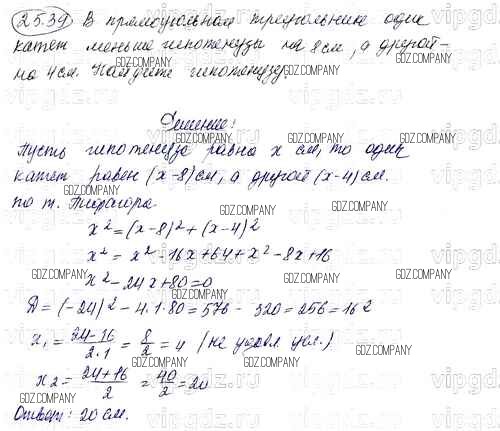 25.39 В прямоугольном треугольнике один
катет меньше гипотенузы на 8 см, а другой –
на 4 см. Найдите гипотенузу.
Решение:
Пусть гипотенуза равна x см, то один
катет равен (x-8) см, а другой (x-4) см.
по т. Пифагора.
x² = (x-8)² + (x-4)²
x² = x² - 16x + 64 + x² - 8x + 16
x² - 24x + 80 = 0
Д = (-24)² - 4.1.80 = 576 - 320 = 256 = 16²
x₁ = 24-16 / 2.1 = 8/2 = 4 (не удовл усл.)
x₂ = 24+16 / 2 = 40/2 = 20
Ответ: 20 см.
GDZ.COMPANY
vipgdz.ru